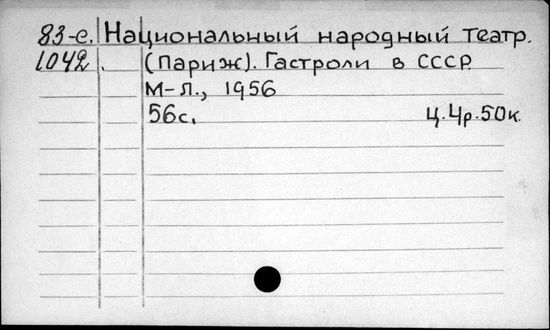 83-с. Национальный народный театр.
1042 (Париж). Гастроли в СССР
М-Л., 1956
56с. Ц. 4р. 50к.